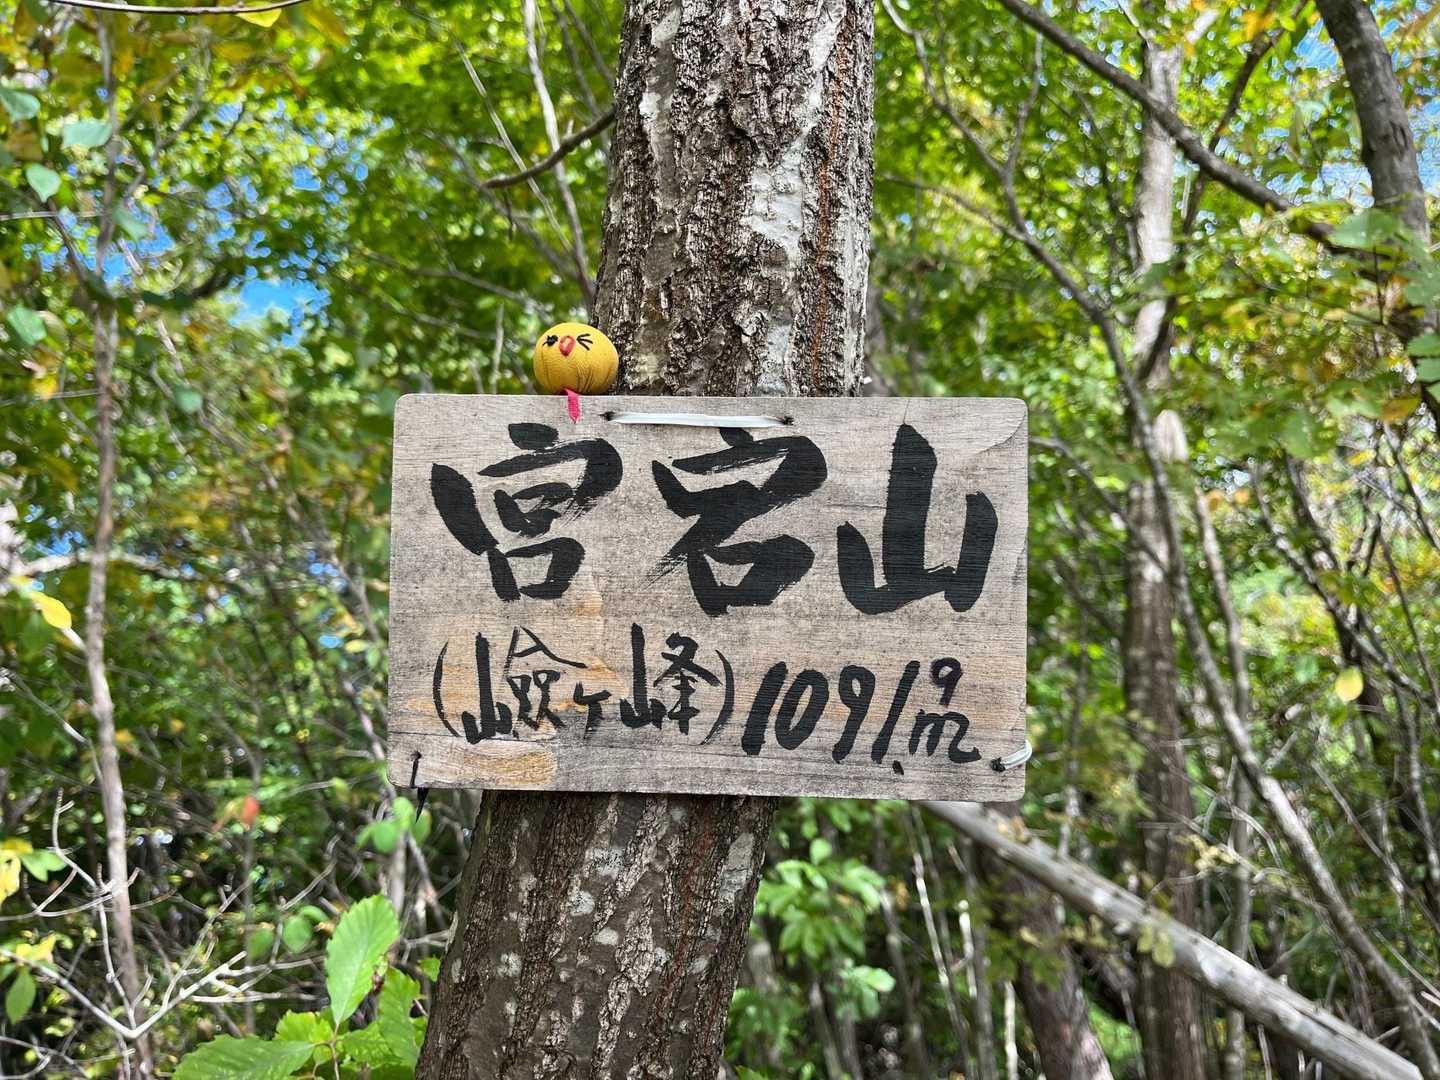 宮宕山
(嶮ヶ峰) 1091.9m